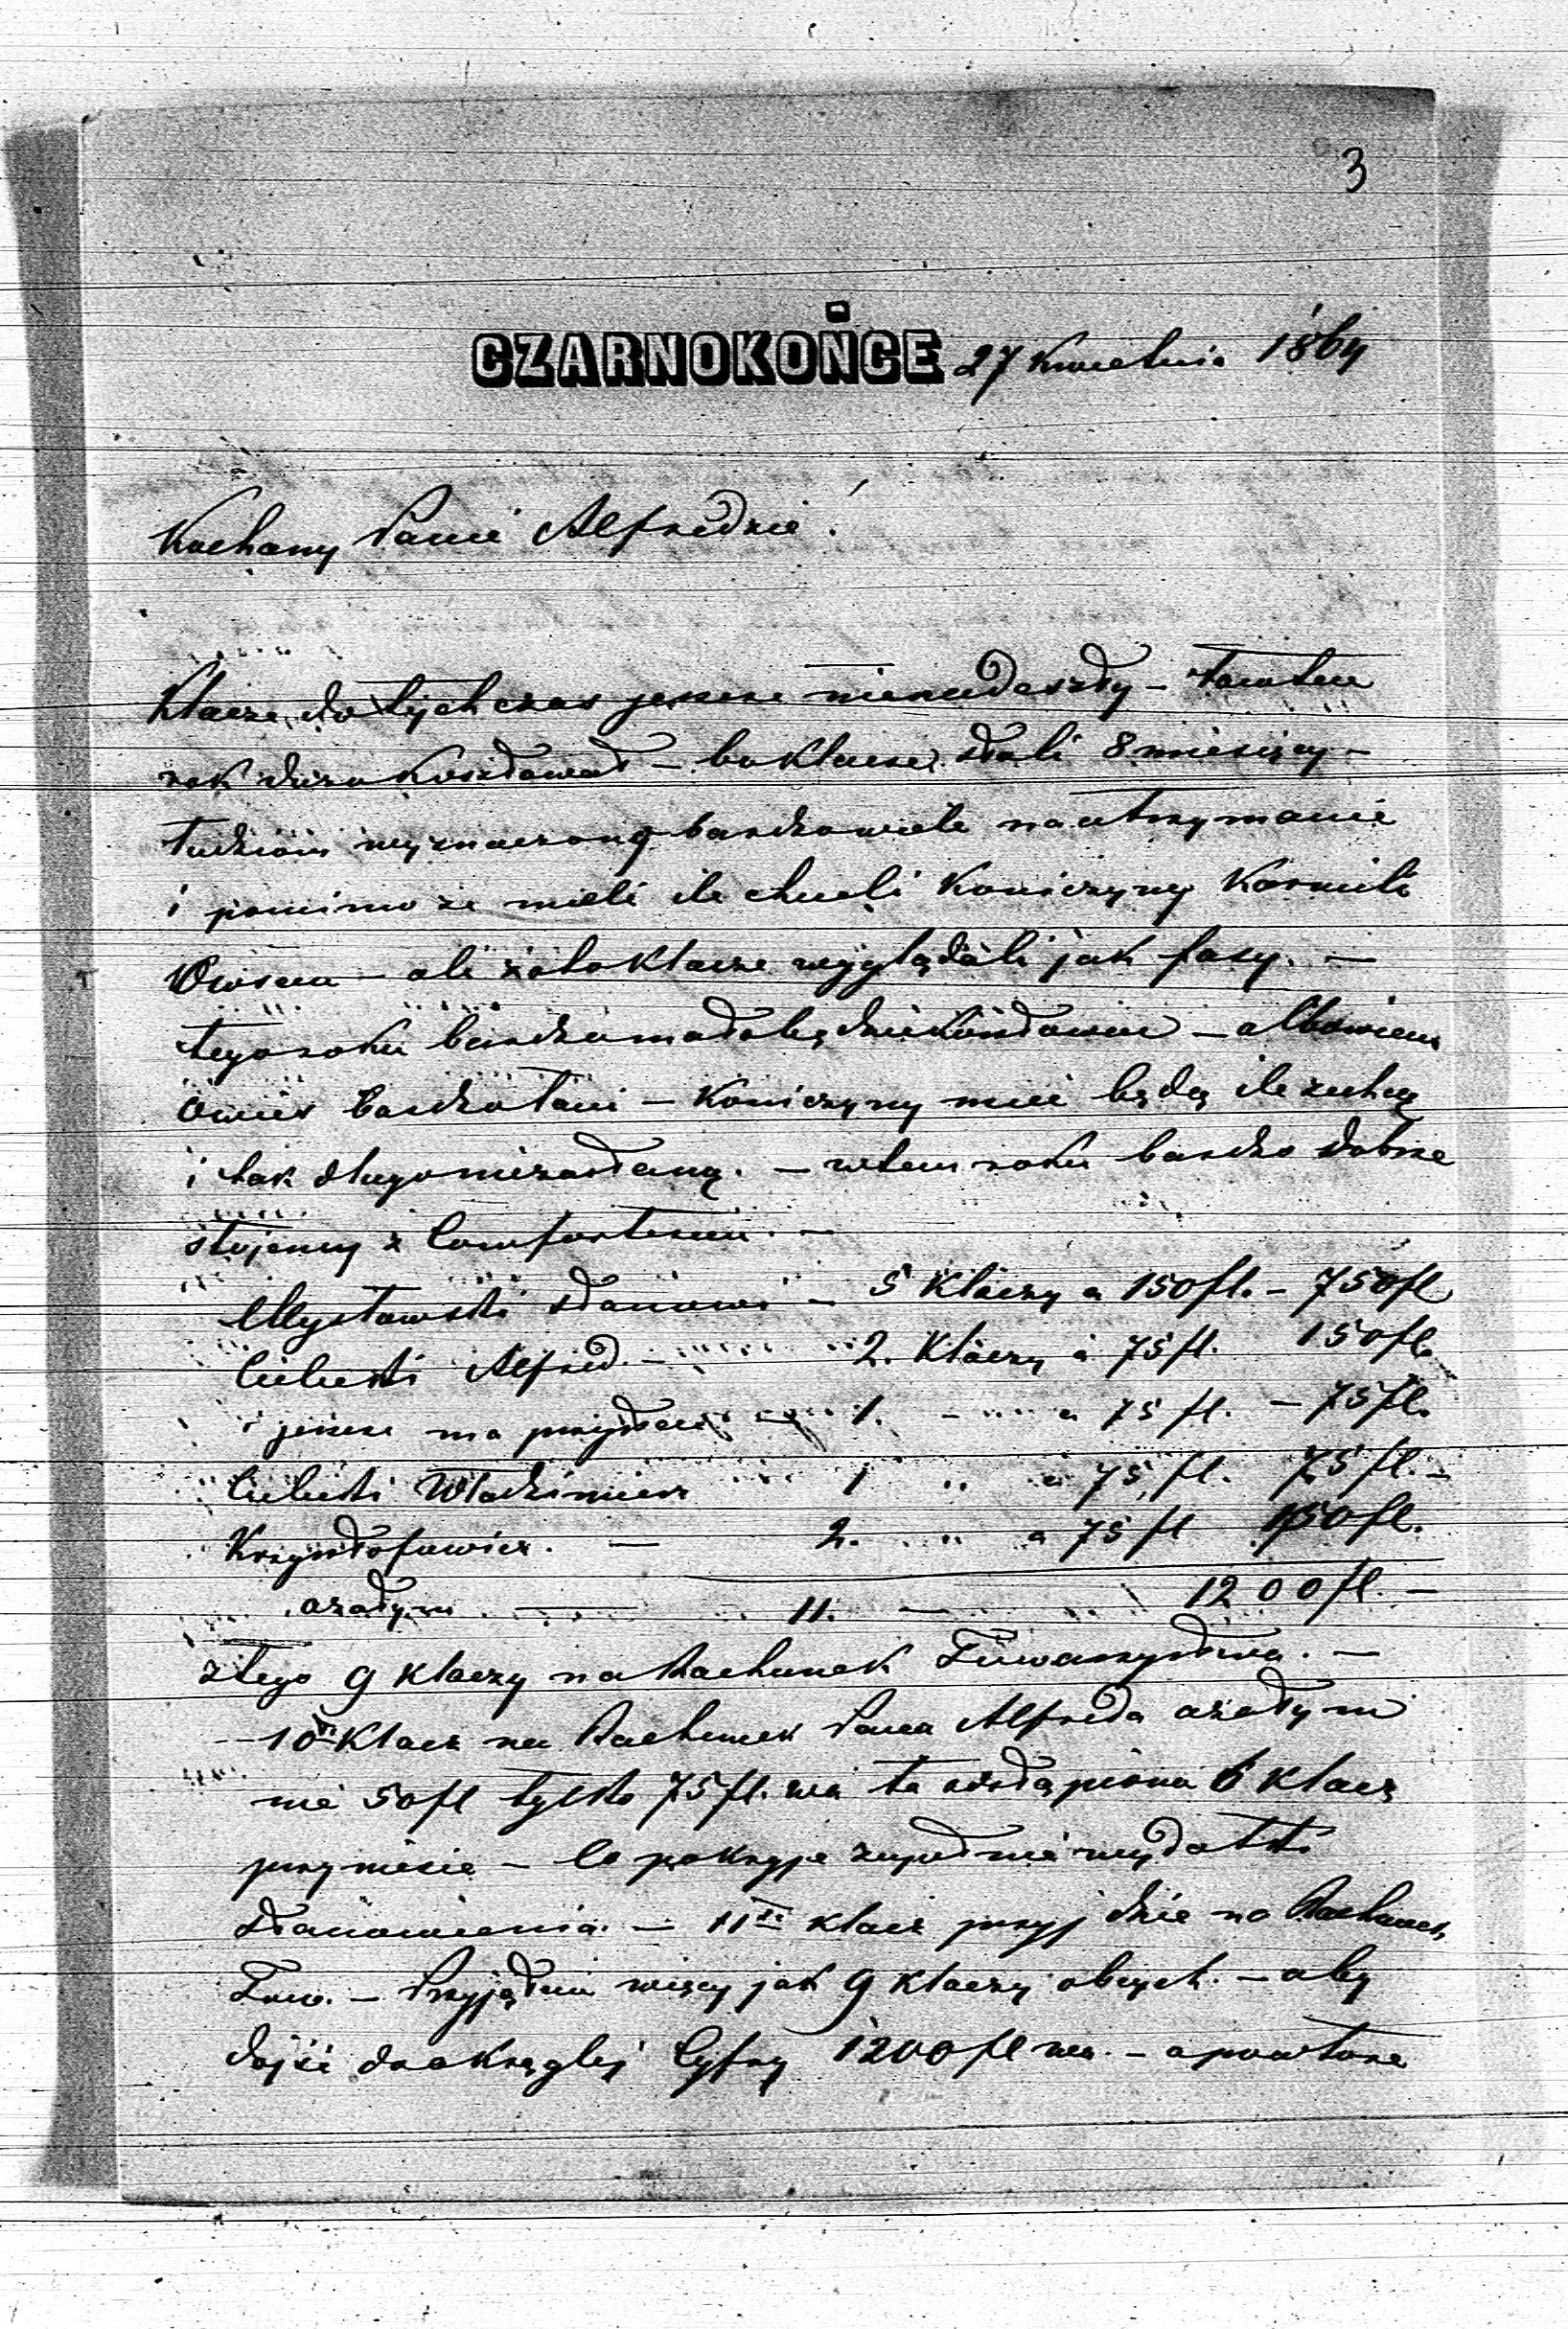 3
CZARNOKOŃCE 27 Kwietnia 1864
Kochany Panie Alfredzie!
Klacze do tych czas jeszcze nienadeszły – tamten
rok dużo kosztował – bo klacze stali 8 miesięcy –
tudzież wyznaczono bardzo wiele na utrzymanie
i pomimo że mieli ile chcieli Koniczyny Karmili
Owsem – ale zato klacze wyglądali jak fasy. –
tego roku bardzo mało będzie kosztować – albowiem
Owies bardzo tani – Koniczyny mieć będą ile zechcą
i tak długo nie zostaną. – w tem roku bardzo dobrze
stojemy z Comfortem. –
Mysłowski stanowi – 5 Klaczy a 150 fl. – 750 fl
Cielecki Alfred. – 2. Klaczy a 75 fl. 150 fl.
i jeszcze ma przysłać – 1. – a 75 fl. – 75 fl.
Cielecki Włodzimierz 1 „ a 75 fl. 75 fl. –
Krzysztofowicz. – 2. „ a 75 fl 150 fl.
a zatym – 11. – 1200 fl. –
z tego 9 klaczy na Rachunek Towarzystwa. –
– 10ta Klacz na Rachunek Pana Alfreda a zatym
nie 50 fl tylko 75 fl. za ta odstąpiona 6 klacz
przyniesie – Co pokryje zupełnie wydatki
stanowienia. – 11ta klacz przyjdzie na Rachunek
Tow. – Przyjąłem więcy jak 9 klaczy obcych. – aby
dojść do okrągłej Cyfry 1200 fl – a powtóre